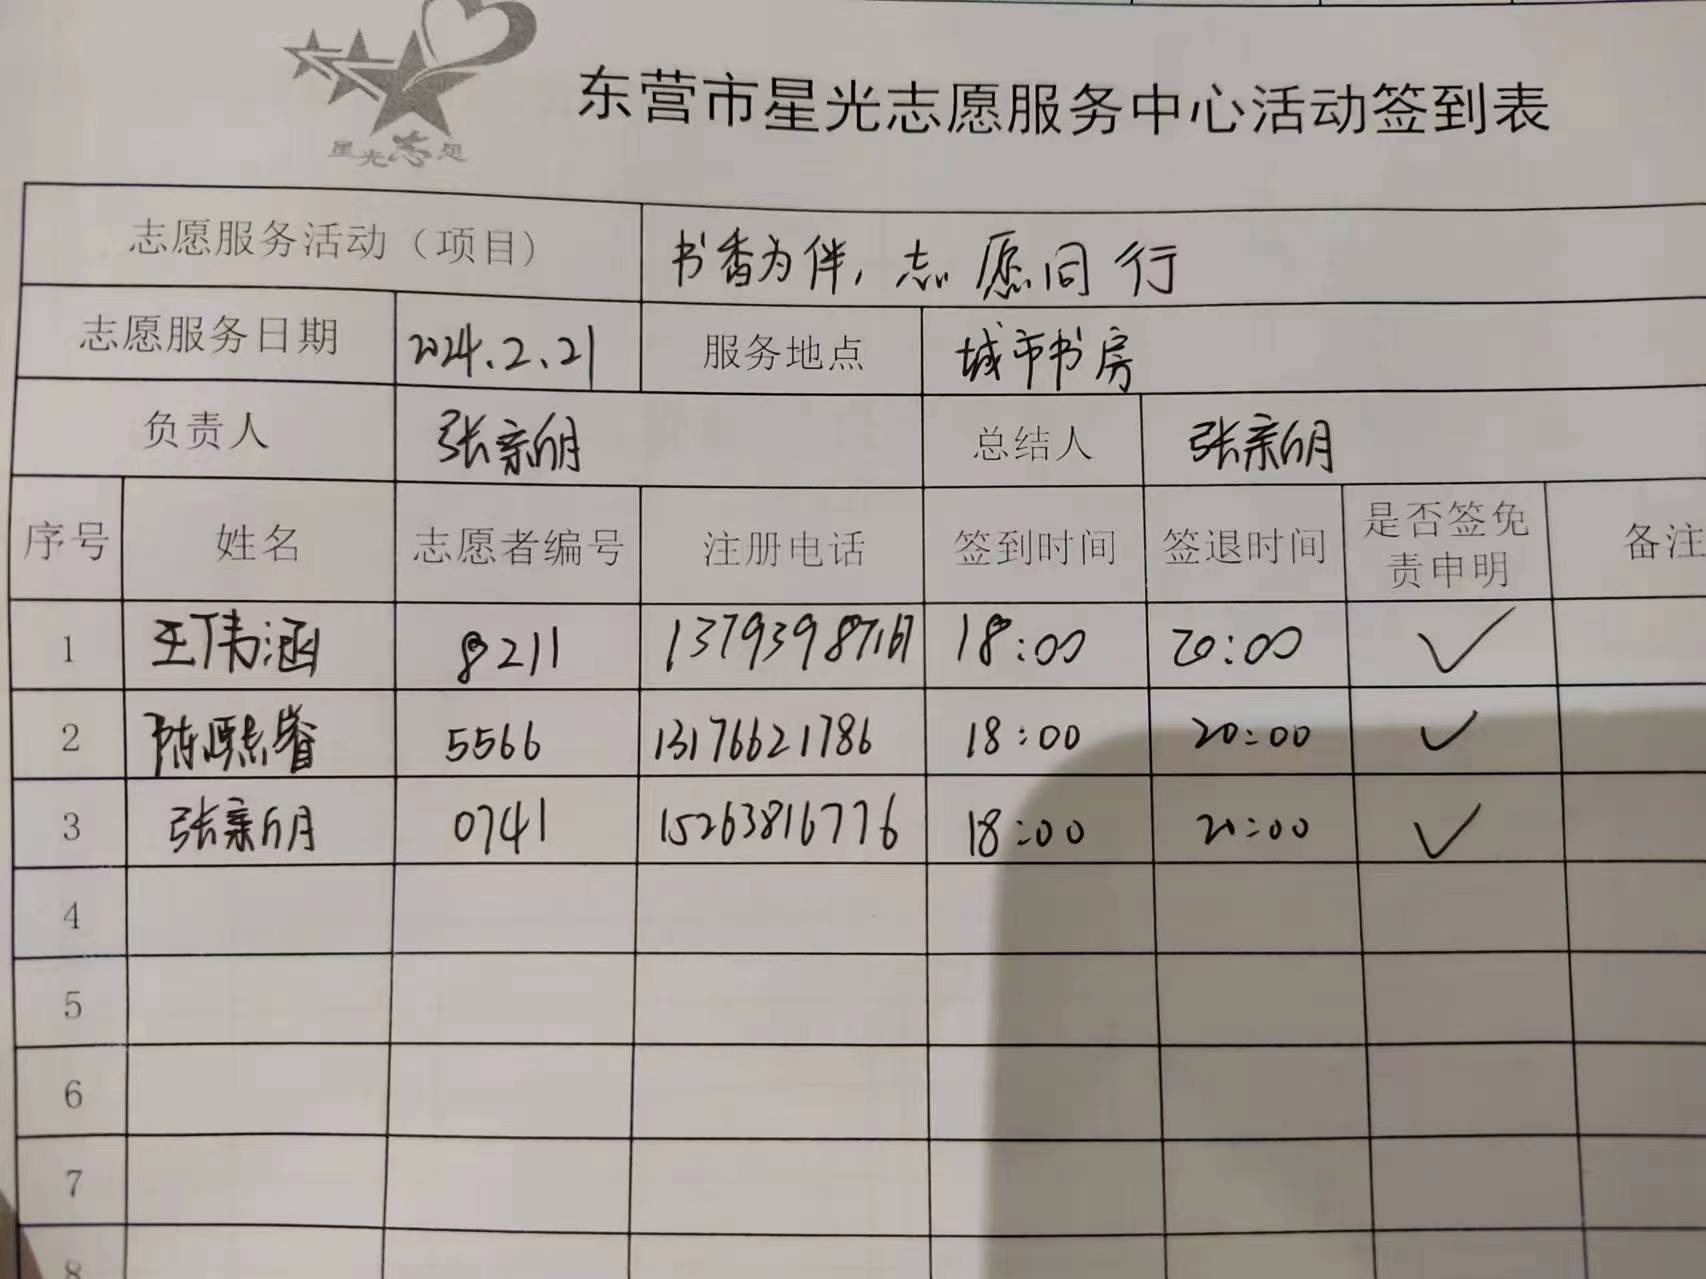 星光志愿
东营市星光志愿服务中心活动签到表
志愿服务活动（项目） 书香为伴，志愿同行
志愿服务日期 2024.2.21 服务地点 城市书房
负责人 张亲明 总结人 张亲明
序号 姓名 志愿者编号 注册电话 签到时间 签退时间 是否签免责申明 备注
1 王伟涵 8211 13793987167 18:00 20:00 ✓
2 陈熙睿 5566 13176621786 18:00 20:00 ✓
3 张亲明 0741 15263816776 18:00 20:00 ✓
4
5
6
7
8